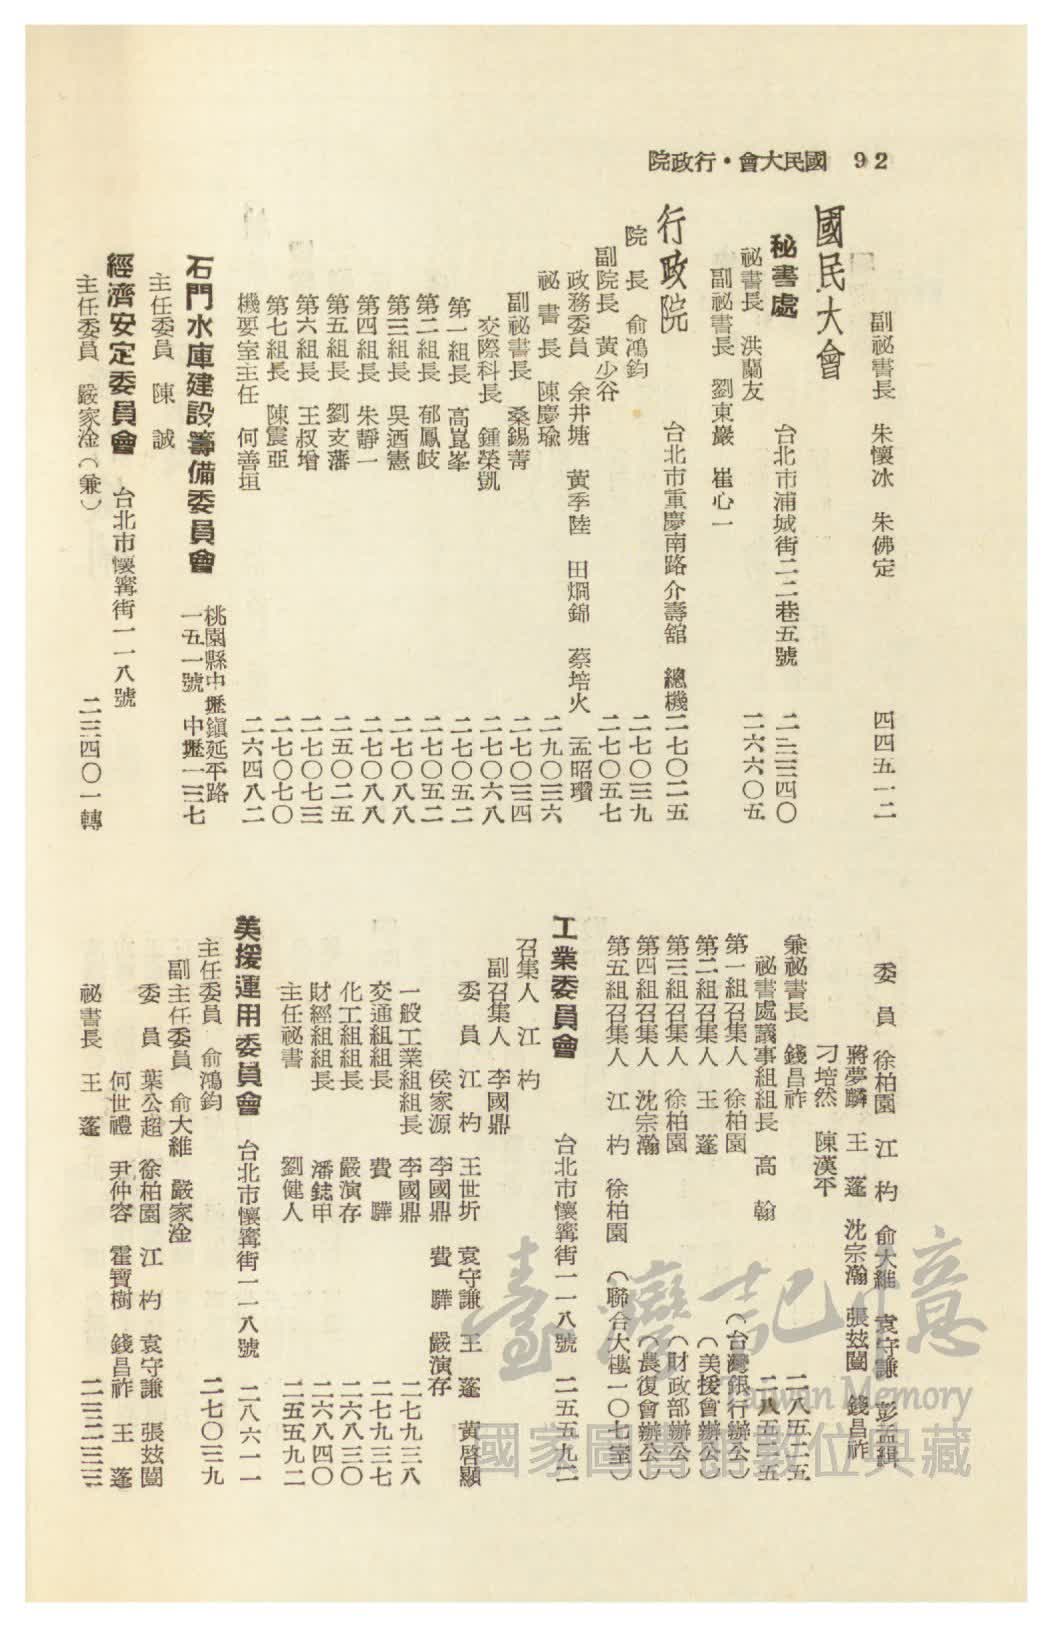 92 國民大會・行政院
副祕書長 朱懷冰 朱佛定 四四五一二
國民大會
秘書處 台北市浦城街二二巷五號 二三三四〇
祕書長 洪蘭友 二六六〇五
副祕書長 劉東巖 崔心一
行政院 台北市重慶南路介壽舘 總機二七〇二五
院長 俞鴻鈞 二七〇三九
副院長 黃少谷 二七〇五七
政務委員 余井塘 黃季陸 田烱錦 蔡培火 孟昭瓚
祕書長 陳慶瑜 二九〇三六
副祕書長 桑錫菁 二七〇三四
交際科長 鍾榮凱 二七〇六八
第一組長 高崑峯 二七〇五二
第二組長 郁鳳岐 二七〇五二
第三組長 吳迺憲 二七〇八八
第四組長 朱靜一 二七〇八八
第五組長 劉支藩 二五〇二五
第六組長 王叔增 二七〇七三
第七組長 陳震亞 二七〇七〇
機要室主任 何善垣 二六四八二
石門水庫建設籌備委員會 桃園縣中壢鎮延平路一五一號 中壢一三七
主任委員 陳誠
經濟安定委員會 台北市懷寗街一一八號
主任委員 嚴家淦（兼） 二三四〇一轉
委員 徐柏園 江杓 俞大維 袁守謙 彭孟緝
蔣夢麟 王蓬 沈宗瀚 張玆闓 錢昌祚
刁培然 陳漢平
兼祕書長 錢昌祚 二八五二五
祕書處議事組組長 高翰 二八五三五
第一組召集人 徐柏園 （台灣銀行辦公）
第二組召集人 王蓬 （美援會辦公）
第三組召集人 徐柏園 （財政部辦公）
第四組召集人 沈宗瀚 （農復會辦公）
第五組召集人 江杓 徐柏園 （聯合大樓一〇七室）
工業委員會 台北市懷寗街一一八號 二五五九二
召集人 江杓
副召集人 李國鼎
委員 江杓 王世圻 袁守謙 王蓬 黃啓顯
侯家源 李國鼎 費驊 嚴演存
一般工業組組長 李國鼎 二七九三八
交通組組長 費驊 二七九三七
化工組組長 嚴演存 二六八三〇
財經組組長 潘鋕甲 二六八四〇
主任祕書 劉健人 二五五九二
美援運用委員會 台北市懷寗街一一八號 二八六一一
主任委員 俞鴻鈞 二七〇三九
副主任委員 俞大維 嚴家淦
委員 葉公超 徐柏園 江杓 袁守謙 張玆闓
何世禮 尹仲容 霍寶樹 錢昌祚 王蓬
祕書長 王蓬 二三二三三
臺灣記憶
Taiwan Memory
國家圖書館數位典藏